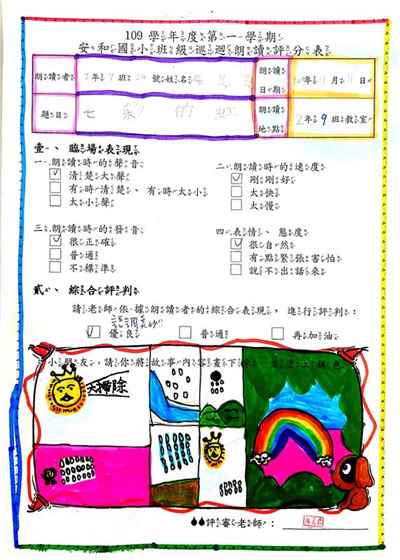 109學年度第一學期
安和國小班級巡迴朗讀評分表
朗讀者 2年7班 號姓名 朗讀日期 年11月11日
題目 七彩的 朗讀地點 2年9班教室
壹、臨場表現
一、朗讀時的聲音 二、朗讀時的速度
清楚大聲 剛剛好
有時清楚、有時太小 太快
太小聲 太慢
三、朗讀時的發音 四、表情、態度
很正確 很自然
普通 有點緊張害怕
不標準 說不出話來
貳、綜合評判
請老師依據朗讀者的綜合表現,進行評判:
優良 普通 再加油
小朋友,請你將故事內容畫下
大掃除
評審老師: